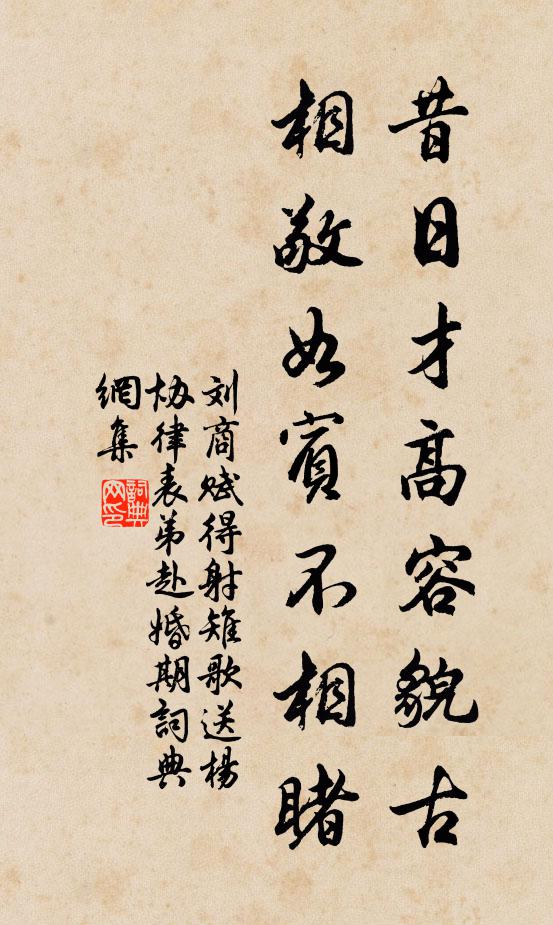 昔日才高容貌古
相敬如賓不相睹
刘商赋得射雉歌送楊
协律表弟赴婚期詞典
網集
詞典
网印